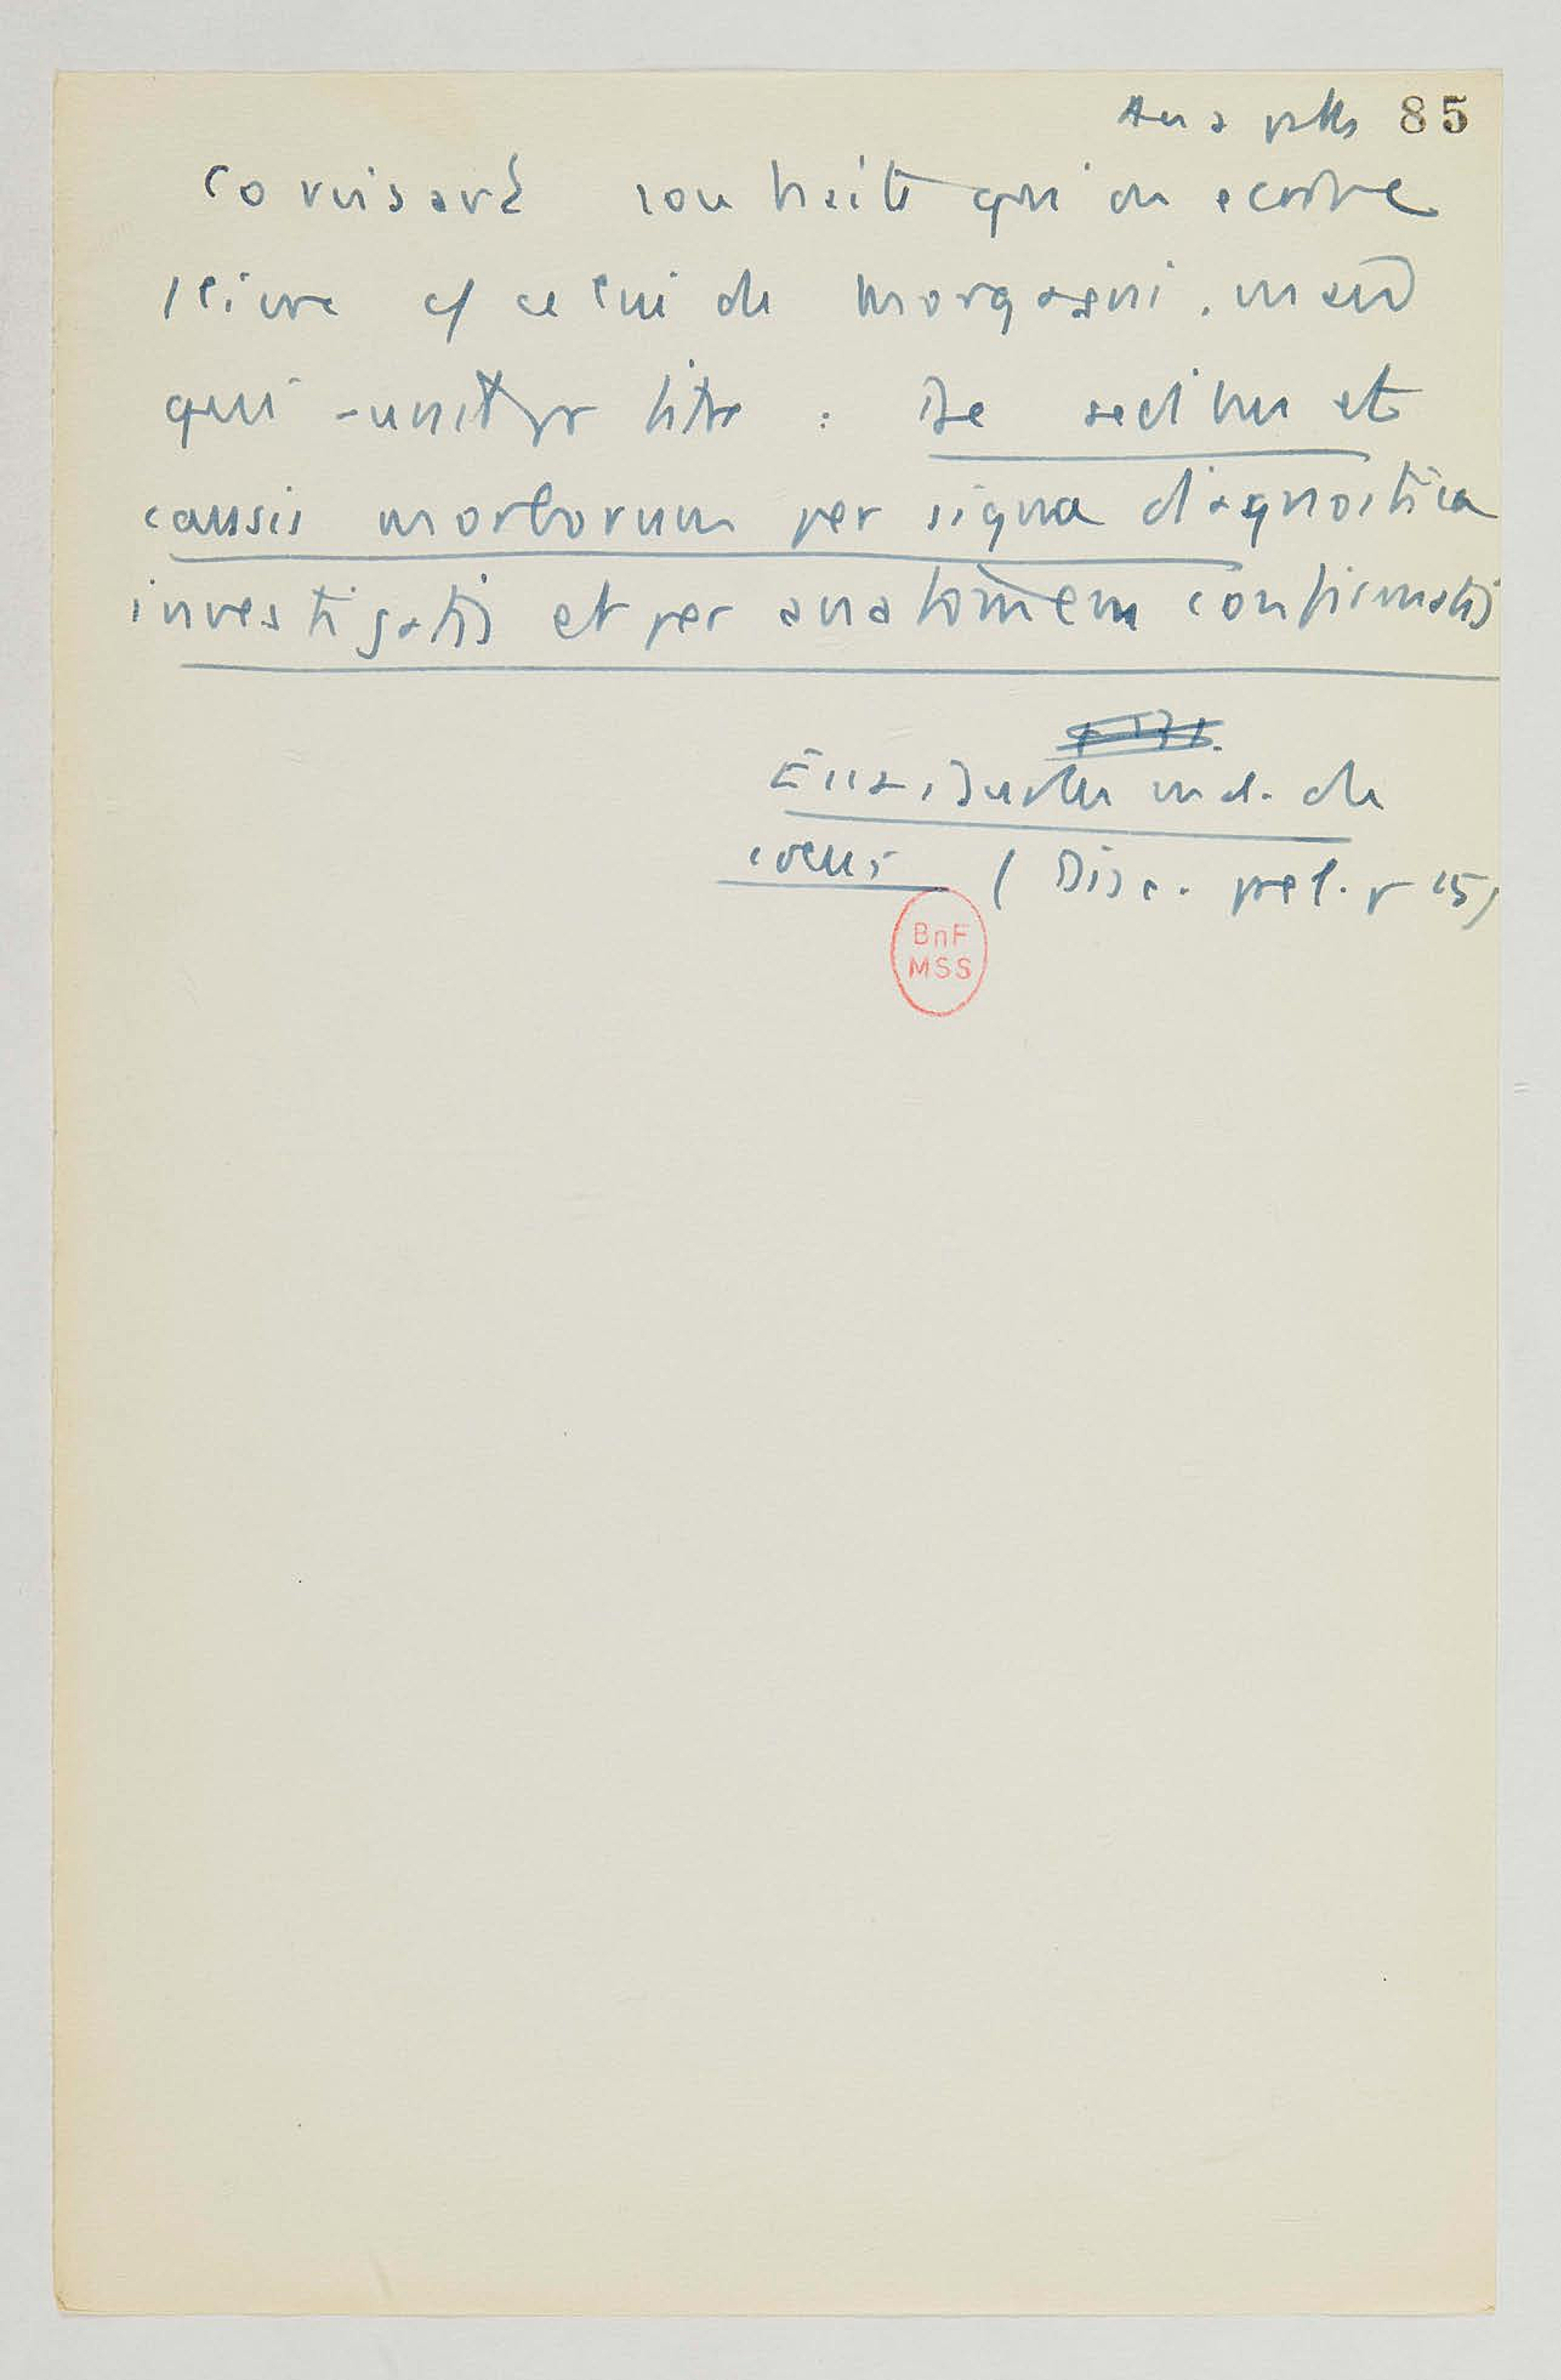 Ana path 85
Corvisart souhaite qu'on ecrive
1 livre cf celui de Morgagni. mais
qui aurait pr titre : De sedibus et
causis morborum per signa diagnostica
investigatis et per anatomem confirmatis
Essai sur les mal. du
coeur (Disc. prel. p 15)
BnF
MSS